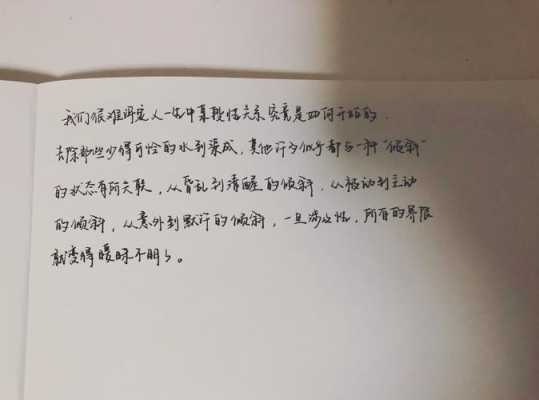 我们很难界定人一生中某段性关系究竟是如何开始的，
去除那些少得可怜的水到渠成，其他行为似乎都与一种“倾斜”
的状态有所关联，从昏乱到清醒的倾斜，从被动到主动
的倾斜，从意外到默许的倾斜，一旦涉及性，所有的界限
就变得暧昧不明了。